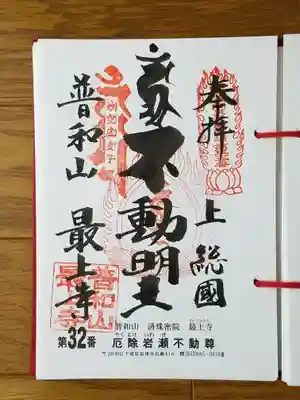 奉拝
上総國
不動明王
普和山
最上寺
普和山
最上寺
第32番
普和山 済珠密院 最上寺
厄除岩瀬不動尊